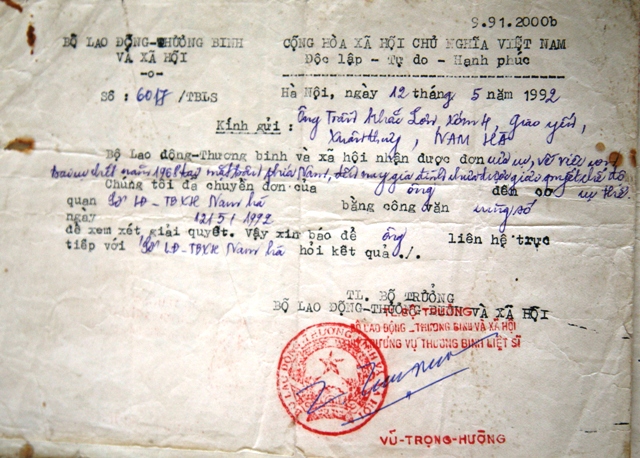 9.91.2000b
BỘ LAO ĐỘNG-THƯƠNG BINH
VÀ XÃ HỘI
-o-
Số : 6017/TBLS
CỘNG HÒA XÃ HỘI CHỦ NGHĨA VIỆT NAM
Độc lập - Tự do - Hạnh phúc
Hà Nội, ngày 12 tháng 5 năm 1992
Kính gửi : Ông Trần Khắc Lợi xóm 4, Giao yến,
Xuân thủy, NAM HÀ
Bộ Lao động-Thương binh và xã hội nhận được đơn của về việc
năm 1968 tại mặt trận phía Nam, đến nay gia đình chưa được giải quyết chế độ
Chúng tôi đã chuyển đơn của ông đến cơ cụ thể
quan Sở LĐ-TBXH Nam hà bằng công văn cùng số
ngày 12/5/1992
để xem xét giải quyết. Vậy xin báo để ông liên hệ trực
tiếp với Sở LĐ-TBXH Nam hà hỏi kết quả ./.
TL. BỘ TRƯỞNG
BỘ LAO ĐỘNG-THƯƠNG BINH VÀ XÃ HỘI
BỘ LAO ĐỘNG - THƯƠNG BINH VÀ XÃ HỘI
TRƯỞNG VỤ THƯƠNG BINH LIỆT SĨ
VŨ-TRỌNG-HƯỜNG